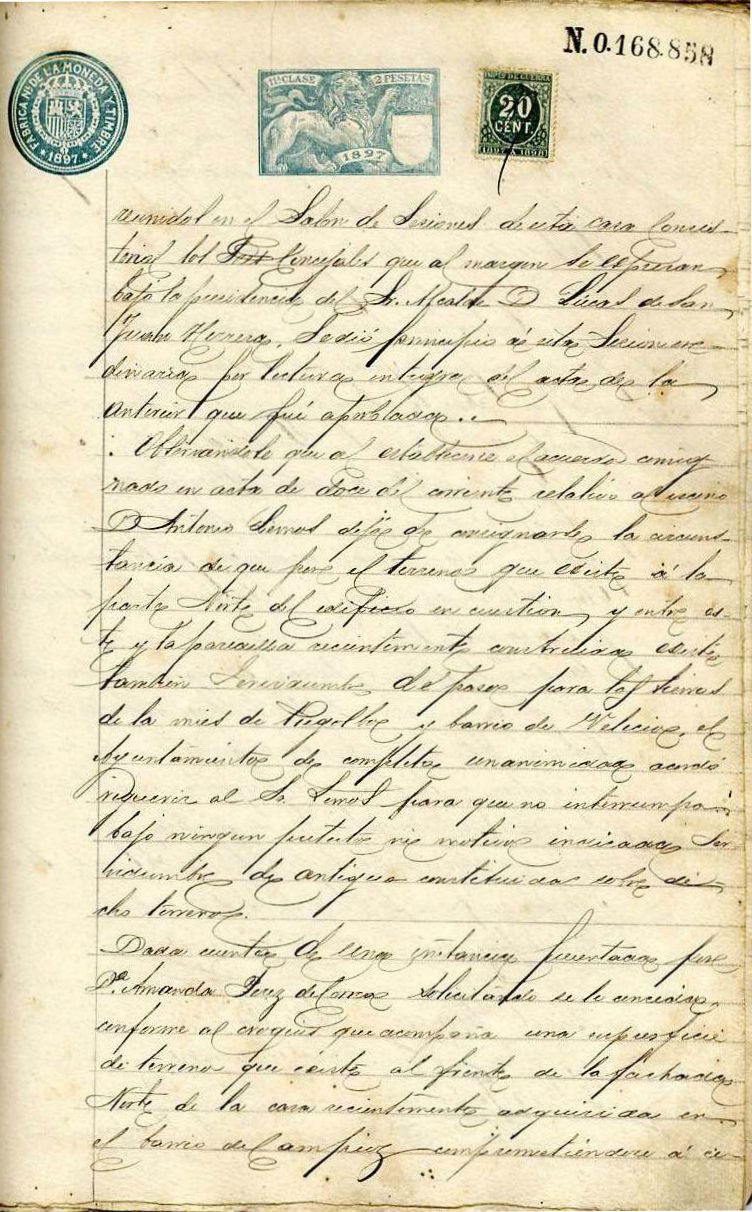 N.0.168.858
FABRICA Nal. DE LA MONEDA Y TIMBRE
* 1897 *
11ª CLASE 2 PESETAS
1897
IMPTO DE GUERRA
20
CENT.
1897 A 1898
reunidos en el Salon de Sesiones de esta casa Consis-
torial los Concejales que al margen se espresan
bajo la presidencia del Sr. Alcalde D. Lucas de San
Juan Herrera, se dió principio á esta Sesion or-
dinaria por lectura integra del acta de la
anterior que fué aprobada.
Observandose que al establecerse el acuerdo consig-
nado en acta de doce del corriente relativo al vecino
D. Antonio Lemos dejó de consignarse la circuns-
tancia de que por el terreno que existe á la
parte Norte del edificio en cuestion, y entre es-
te y la parcela recientemente construida existe
tambien Servidumbre de paso para las tierras
de la mies de y barrio de Velecio, el
Ayuntamiento de completa unanimidad acordó
requerir al Sr. Lemos para que no interrumpa
bajo ningun pretesto ni motivo indicada Ser-
vidumbre de antiguo constituida sobre di-
cho terreno.
Dada cuenta de una instancia presentada por
Dª Amanda Perez del solicitando se le conceda,
conforme al croquis que acompaña una superficie
de terreno que existe al frente de la fachada
Norte de la casa recientemente adquirida en
el barrio del Campiez comprometiéndose á ce-